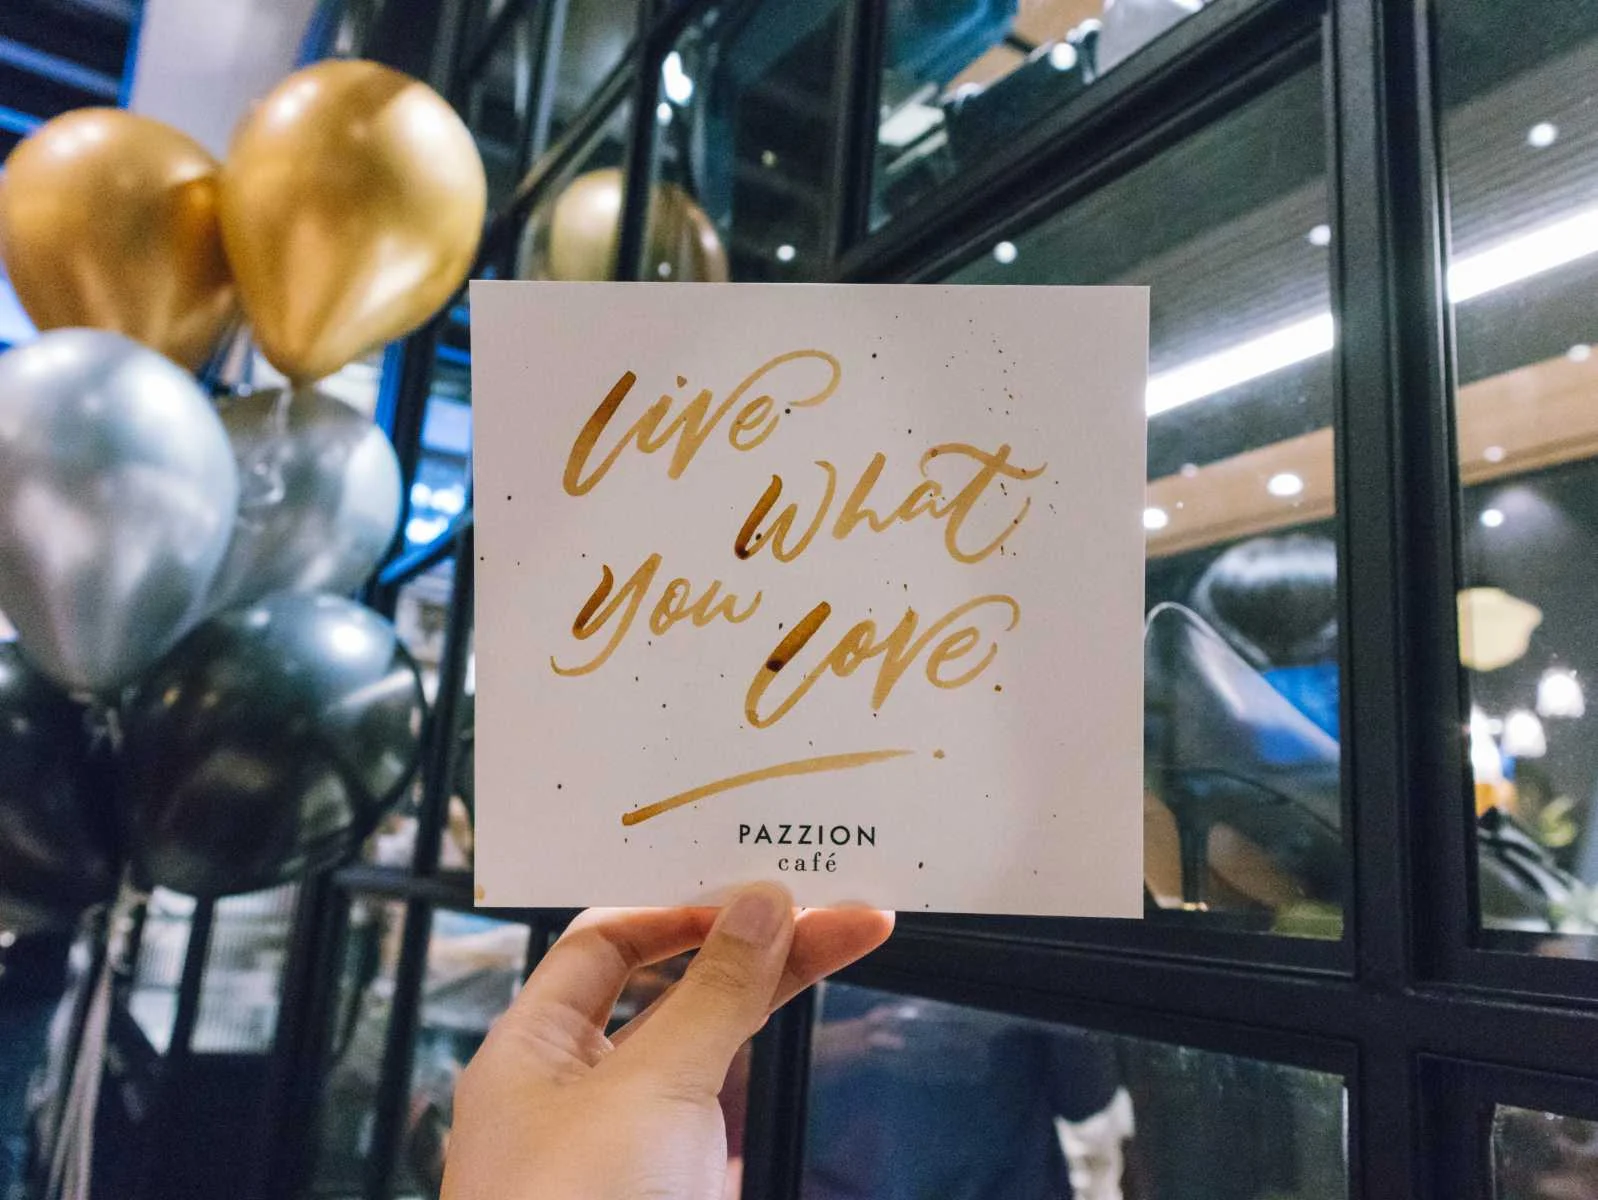 Live
What
You
Love.
PAZZION
café